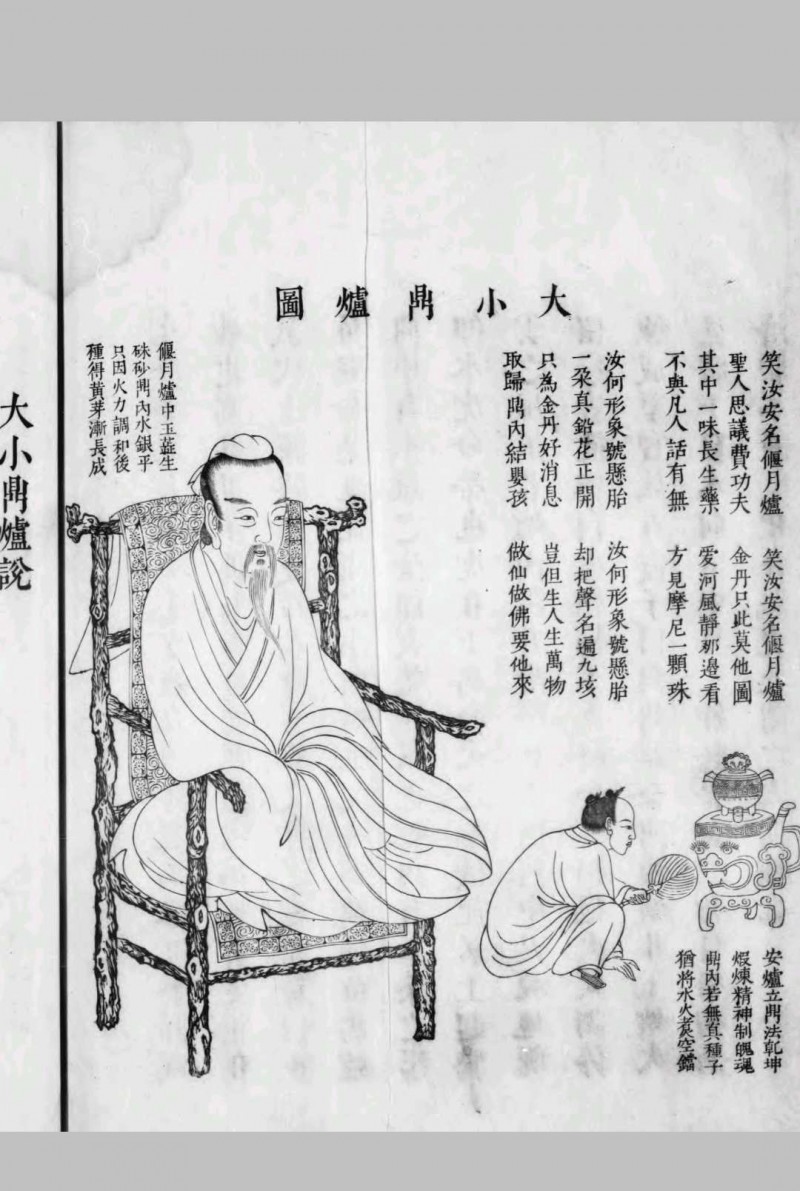 大小鼎爐圖
笑汝安名偃月爐
聖人思議費功夫
其中一味長生藥
不與凡人話有無
笑汝安名偃月爐
金丹只此莫他圖
愛河風靜那邊看
方見摩尼一顆珠
汝何形象號懸胎
一朶真鉛花正開
只為金丹好消息
取歸鼎內結嬰孩
汝何形象號懸胎
却把聲名遍九垓
豈但生人生萬物
做仙做佛要他來
偃月爐中玉蘂生
硃砂鼎內水銀平
只因火力調和後
種得黃芽漸長成
安爐立鼎法乾坤
煆煉精神制魄魂
鼎內若無真種子
猶將水火煑空鐺
大小鼎爐說